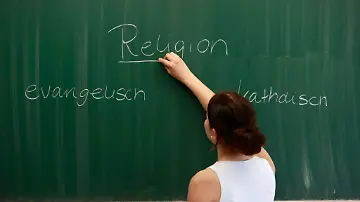 Religion
evangelisch katholisch